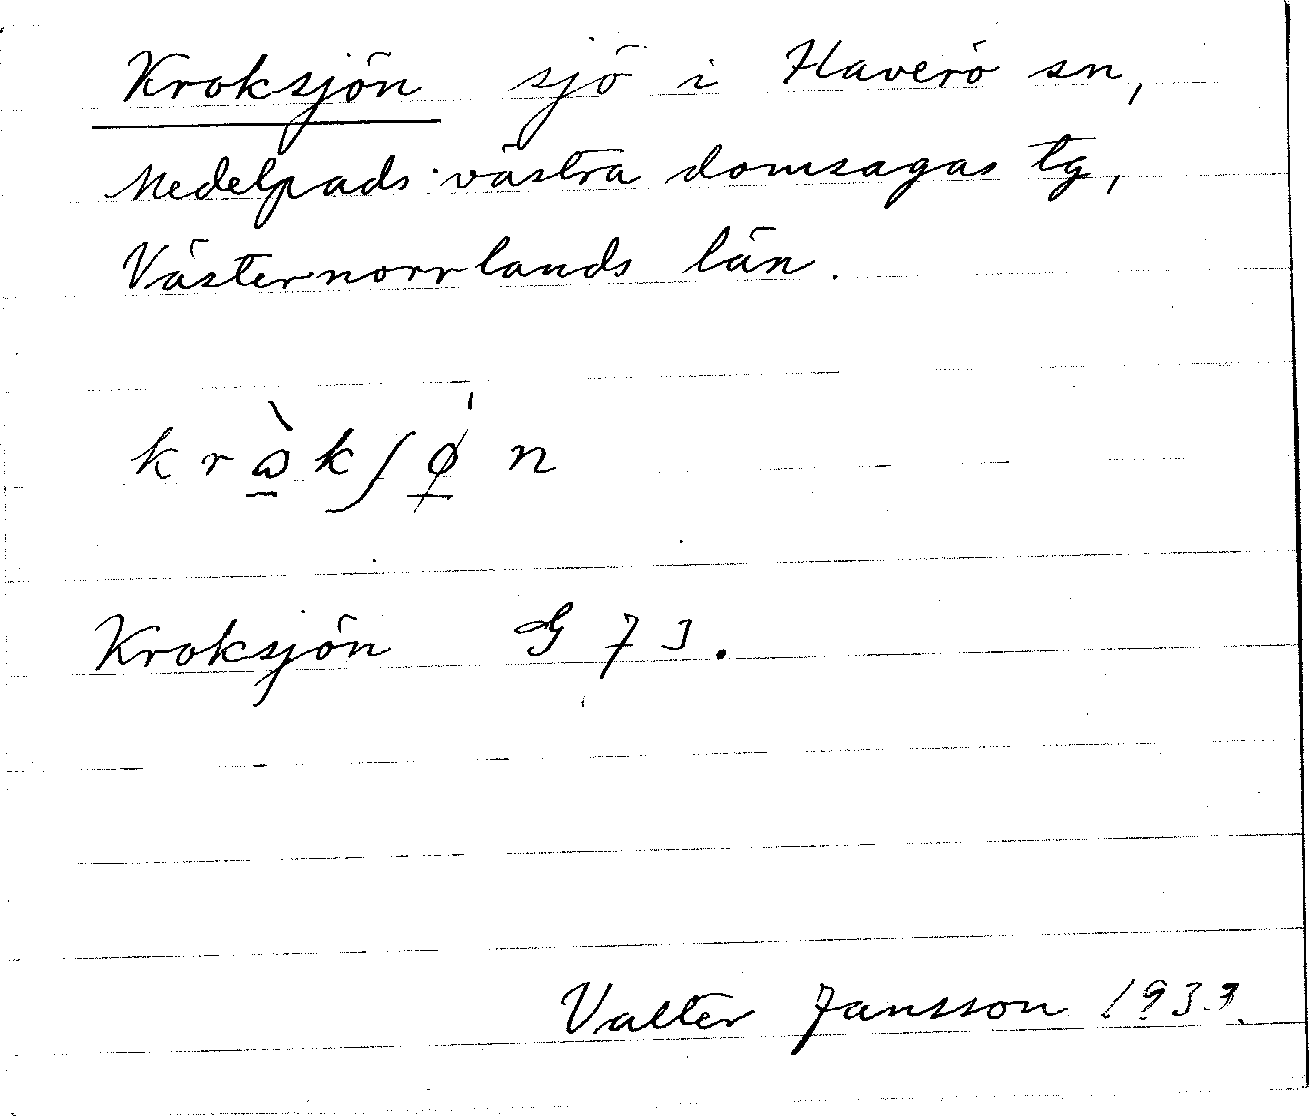 Kroksjön sjö i Haverö sn,
Medelpads västra domsagas tg,
Västernorrlands län.
krὼ̲kʃø̲̍n
Kroksjön G 73.
Valter Jansson 1933.